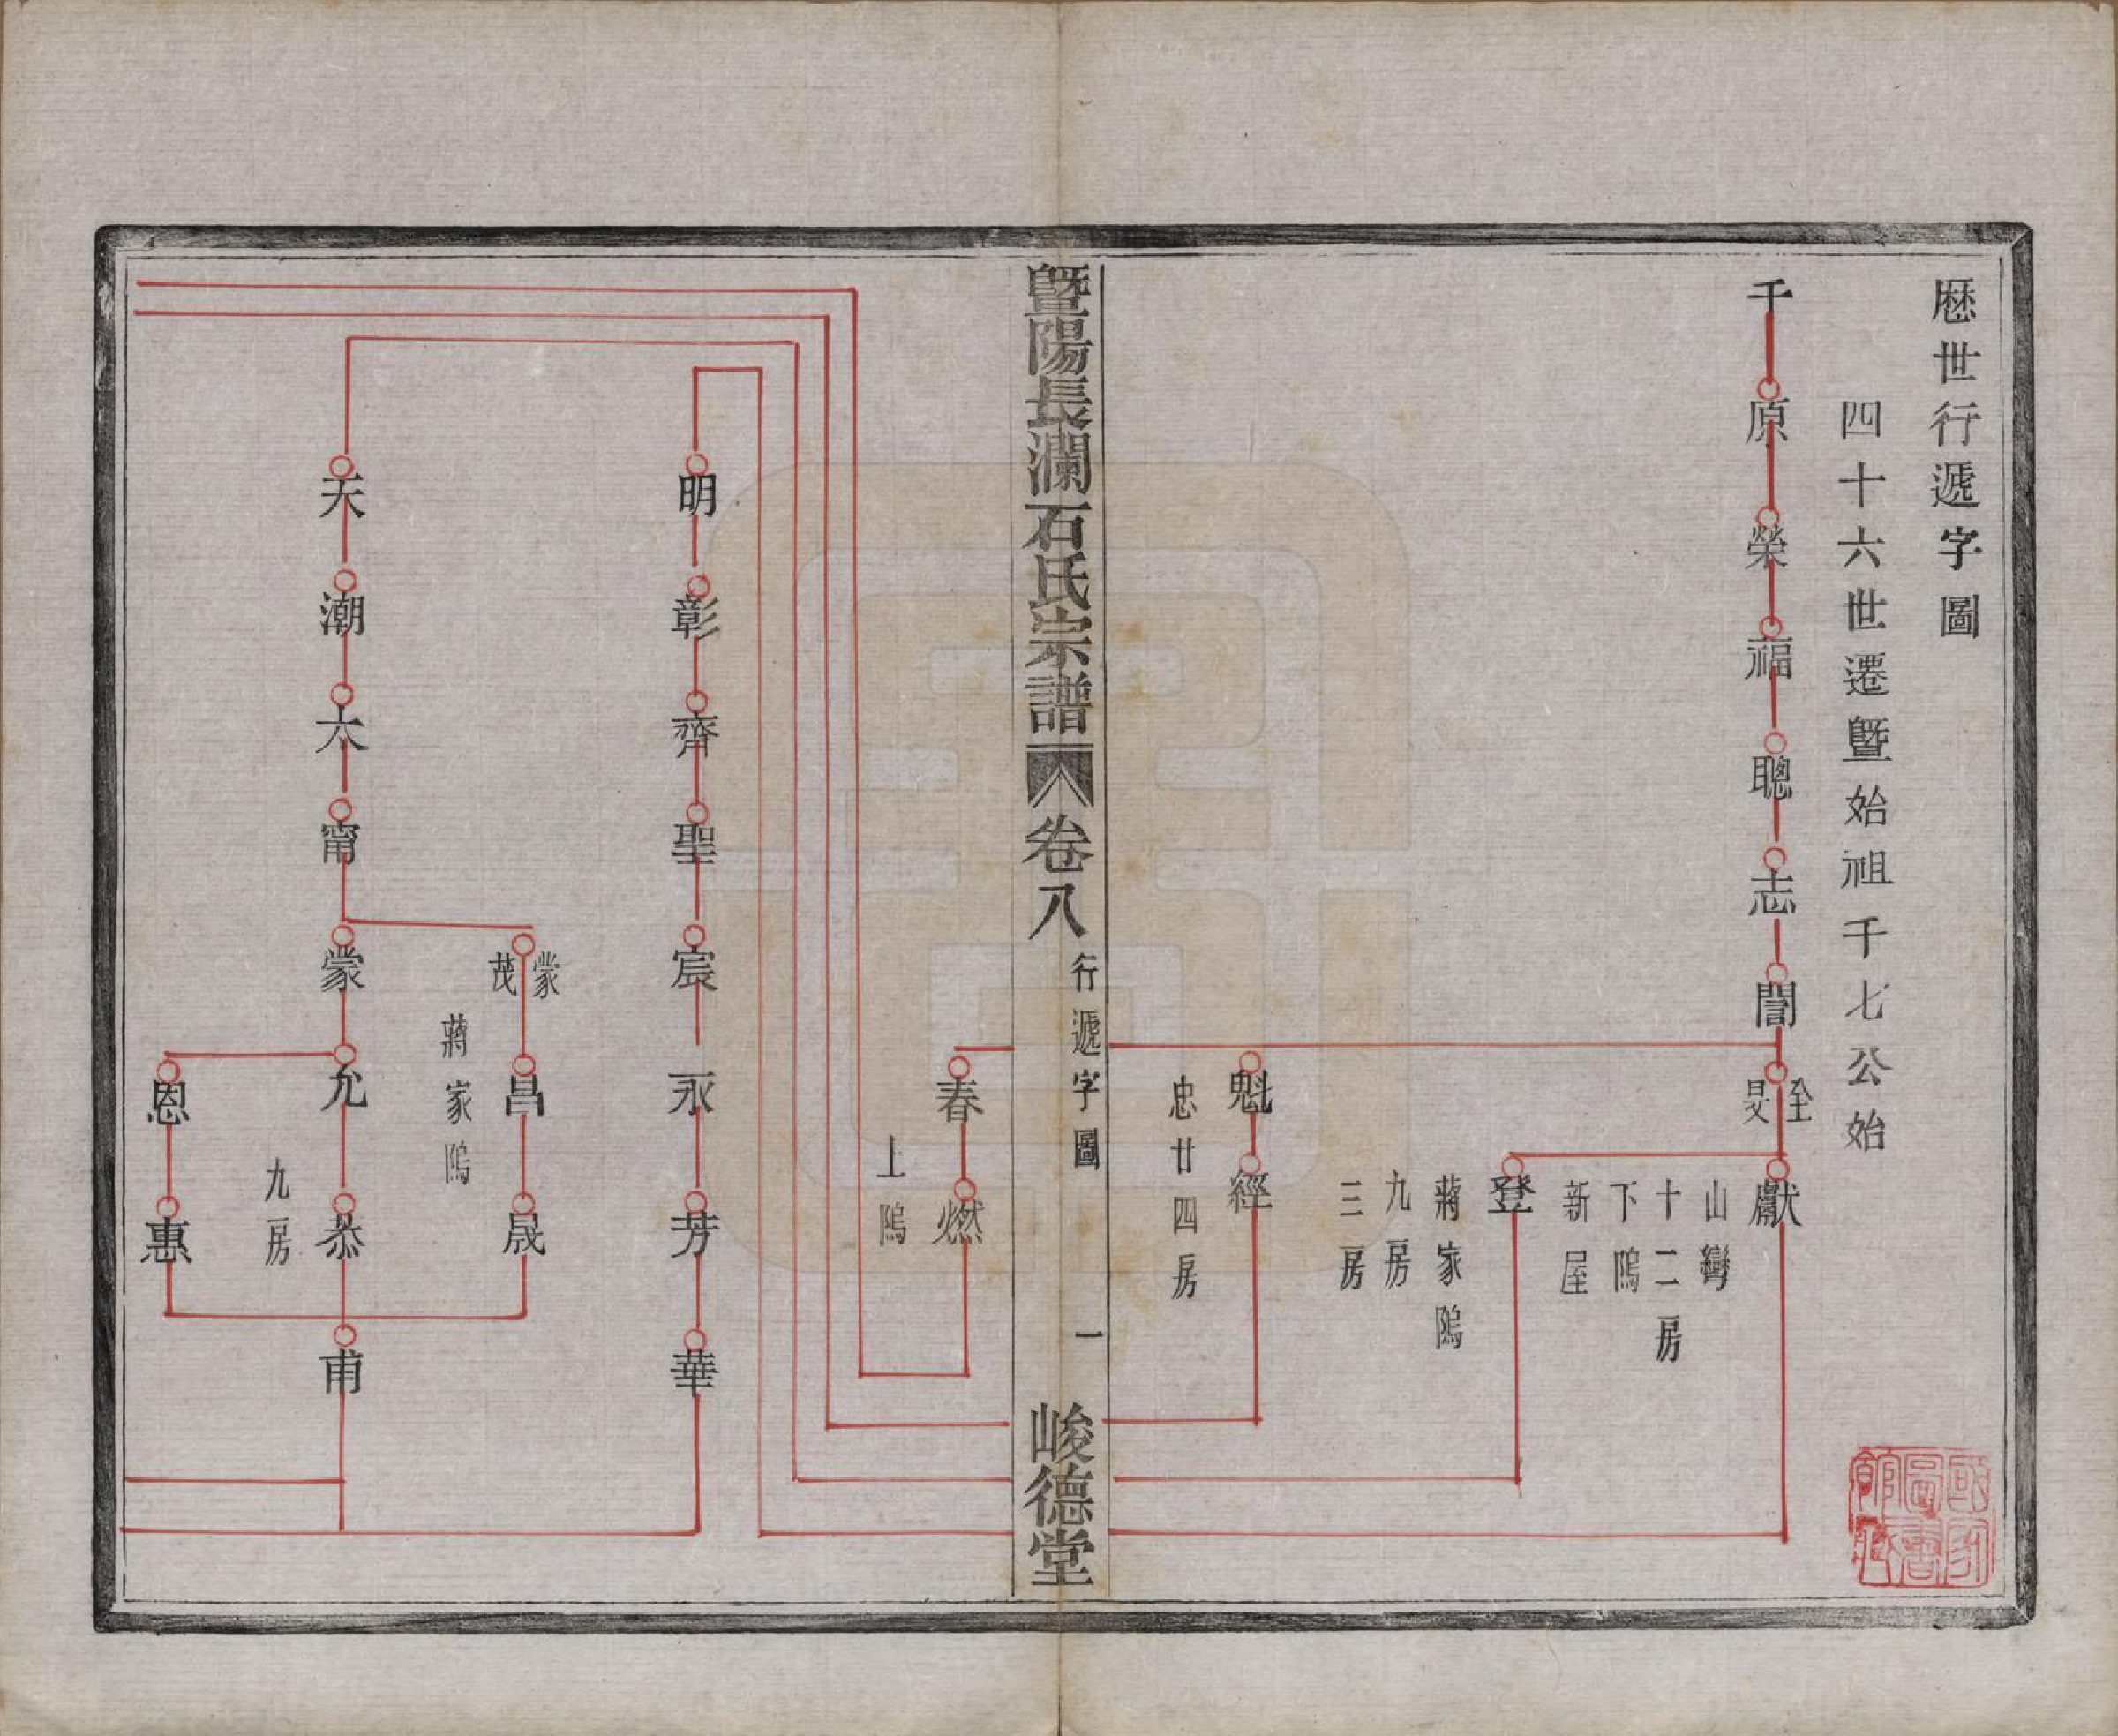 歷世行遞字圖
四十六世遷暨始祖千七公始
千
原
榮
福
聰
志
誾
全
旻
獻
山彎
十二房
下隖
新屋
登
蔣家隖
九房
三房
魁
經
忠廿四房
暨陽長瀾石氏宗譜
卷八
行遞字圖
一
峻德堂
春
燃
上隖
明
彰
齊
聖
宸
永
芳
華
蒙
茂
昌
晟
蔣家隖
天
潮
六
甯
蒙
允
恭
甫
九房
恩
惠
國家
圖書
館藏